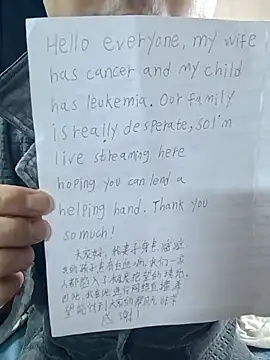 Hello everyone, my wife
has cancer and my child
has leukemia. Our family
is really desperate, so I'm
live streaming here
hoping you can lend a
helping hand. Thank you
so much!
大家好，我妻子身患癌症
我的孩子患有白血病，我们一家
人都陷入了极度绝望的境地
因此，我在此进行网络直播希
望能得到大家的援助，非常
感谢！